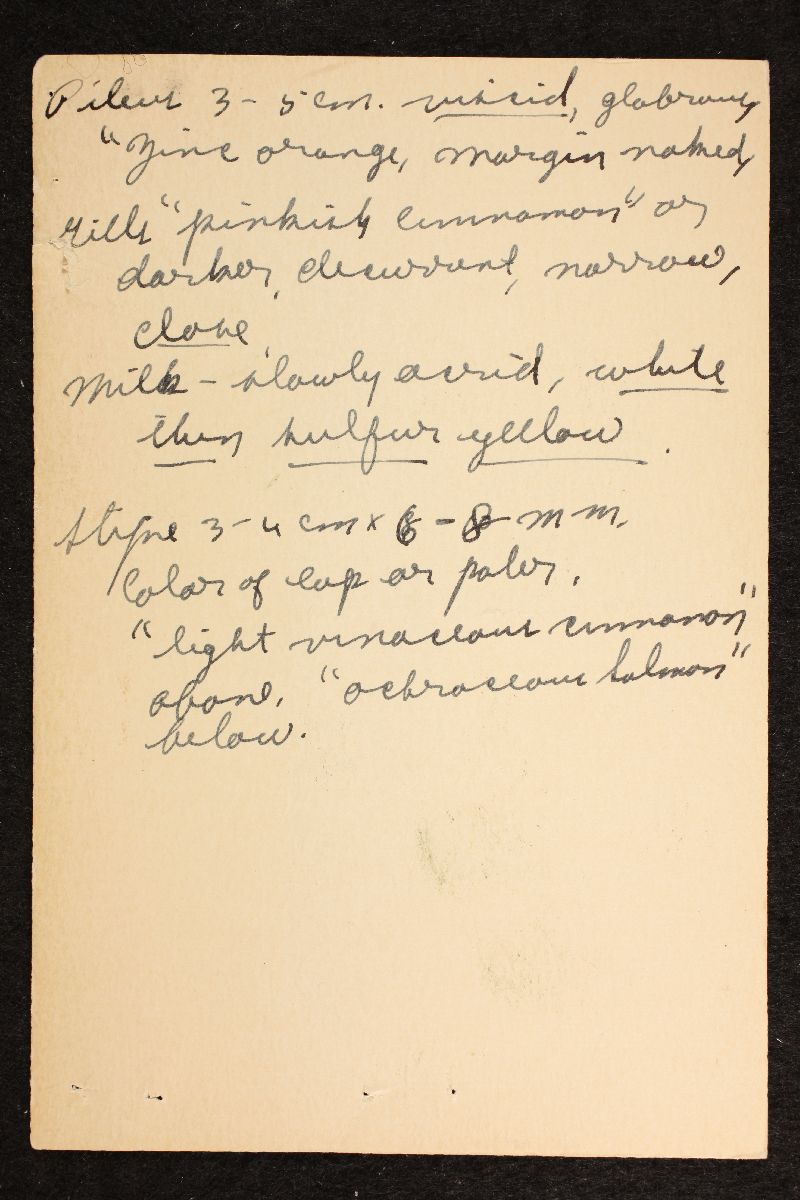 Pileus 3 - 5 cm. viscid, glabrous,
"Zinc orange, margin naked,
Gills "pinkish cinnamon" or
darker, decurrent, narrow,
close,
Milk - slowly acrid, white
then sulfur yellow.
Stipe 3 - 4 cm x 6 - 8 mm.
Color of cap or paler,
"light vinaceous cinnamon"
above, "ochraceous salmon"
below.